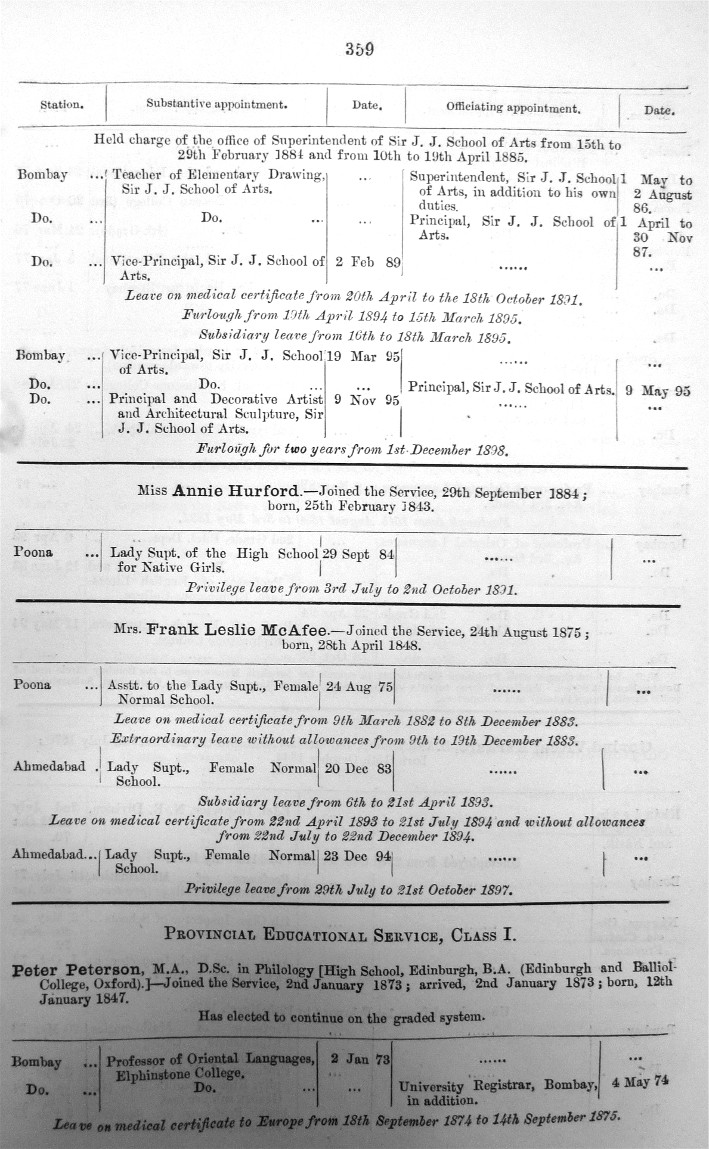 359
Station. Substantive appointment. Date. Officiating appointment. Date.
Held charge of the office of Superintendent of Sir J. J. School of Arts from 15th to
29th February 1884 and from 10th to 19th April 1885.
Bombay ... Teacher of Elementary Drawing, ... Superintendent, Sir J. J. School 1 May to
Sir J. J. School of Arts. of Arts, in addition to his own 2 August
duties. 86.
Do. ... Do. ... ... Principal, Sir J. J. School of 1 April to
Arts. 30 Nov
87.
Do. ... Vice-Principal, Sir J. J. School of 2 Feb 89 ...... ...
Arts.
Leave on medical certificate from 20th April to the 18th October 1891.
Furlough from 19th April 1894 to 15th March 1895.
Subsidiary leave from 16th to 18th March 1895.
Bombay ... Vice-Principal, Sir J. J. School 19 Mar 95 ...... ...
of Arts.
Do. ... Do. ... ... Principal, Sir J. J. School of Arts. 9 May 95
Do. ... Principal and Decorative Artist 9 Nov 95 ...... ...
and Architectural Sculpture, Sir
J. J. School of Arts.
Furlough for two years from 1st December 1898.
Miss Annie Hurford.—Joined the Service, 29th September 1884 ;
born, 25th February 1843.
Poona ... Lady Supt. of the High School 29 Sept 84 ...... ...
for Native Girls.
Privilege leave from 3rd July to 2nd October 1891.
Mrs. Frank Leslie McAfee.—Joined the Service, 24th August 1875 ;
born, 28th April 1848.
Poona ... Asstt. to the Lady Supt., Female 24 Aug 75 ...... ...
Normal School.
Leave on medical certificate from 9th March 1882 to 8th December 1883.
Extraordinary leave without allowances from 9th to 19th December 1883.
Ahmedabad . Lady Supt., Female Normal 20 Dec 83 ...... ...
School.
Subsidiary leave from 6th to 21st April 1893.
Leave on medical certificate from 22nd April 1893 to 21st July 1894 and without allowances
from 22nd July to 22nd December 1894.
Ahmedabad... Lady Supt., Female Normal 23 Dec 94 ...... ...
School.
Privilege leave from 29th July to 21st October 1897.
PROVINCIAL EDUCATIONAL SERVICE, CLASS I.
Peter Peterson, M.A., D.Sc. in Philology [High School, Edinburgh, B.A. (Edinburgh and Balliol
College, Oxford).]—Joined the Service, 2nd January 1873 ; arrived, 2nd January 1873 ; born, 12th
January 1847.
Has elected to continue on the graded system.
Bombay ... Professor of Oriental Languages, 2 Jan 73 ...... ...
Elphinstone College.
Do. ... Do. ... ... University Registrar, Bombay, 4 May 74
in addition.
Leave on medical certificate to Europe from 18th September 1874 to 14th September 1875.